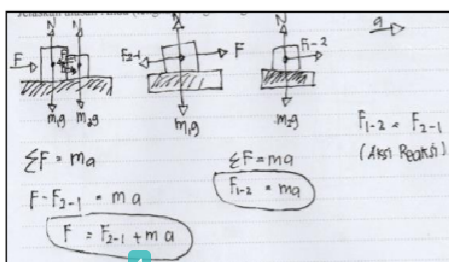 N N
F
m₁g m₂g
N
F₂₋₁ F
m₁g
N
F₁₋₂
m₂g
a
F₁₋₂ = F₂₋₁
(Aksi Reaksi)
ΣF = ma
F - F₂₋₁ = m a
F = F₂₋₁ + m a
ΣF = ma
F₁₋₂ = ma